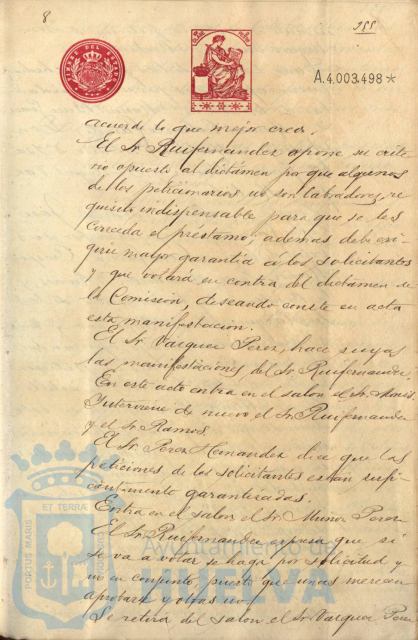 8
255
TIMBRE DEL ESTADO
A.4.003.498*
acuerde lo que mejor crea.
El Sr. Ruifernandez opone su crite
rio opuesto al dictámen por que algunos
de los peticionarios no son labradores, re
quisito indispensable para que se les
conceda el préstamo; además debe exi
girse mayor garantía a los solicitantes
y que votará en contra del dictamen de
la Comisión, deseando conste en acta
esta manifestacion.
El Sr. Vazquez Perez, hace suyas
las manifestaciones del Sr. Ruifernandez.
En este acto entra en el salon el Sr.
Interviene de nuevo el Sr. Ruifernandez
y el Sr. Ramos.
El Sr. Perez Hernandez dice que las
peticiones de los solicitantes estan sufi
cientemente garantizadas.
Entra en el salon el Sr. Muñoz Perez.
El Sr. Ruifernandez expresa que si
se va a votar se haga por solicitud y
no en conjunto puesto que unas merecen
aprobarse y otras no.
Se retira del salon el Sr. Vazquez Perez
PORTUS MARIS
ET TERRAE
Ayuntamiento de
HUELVA